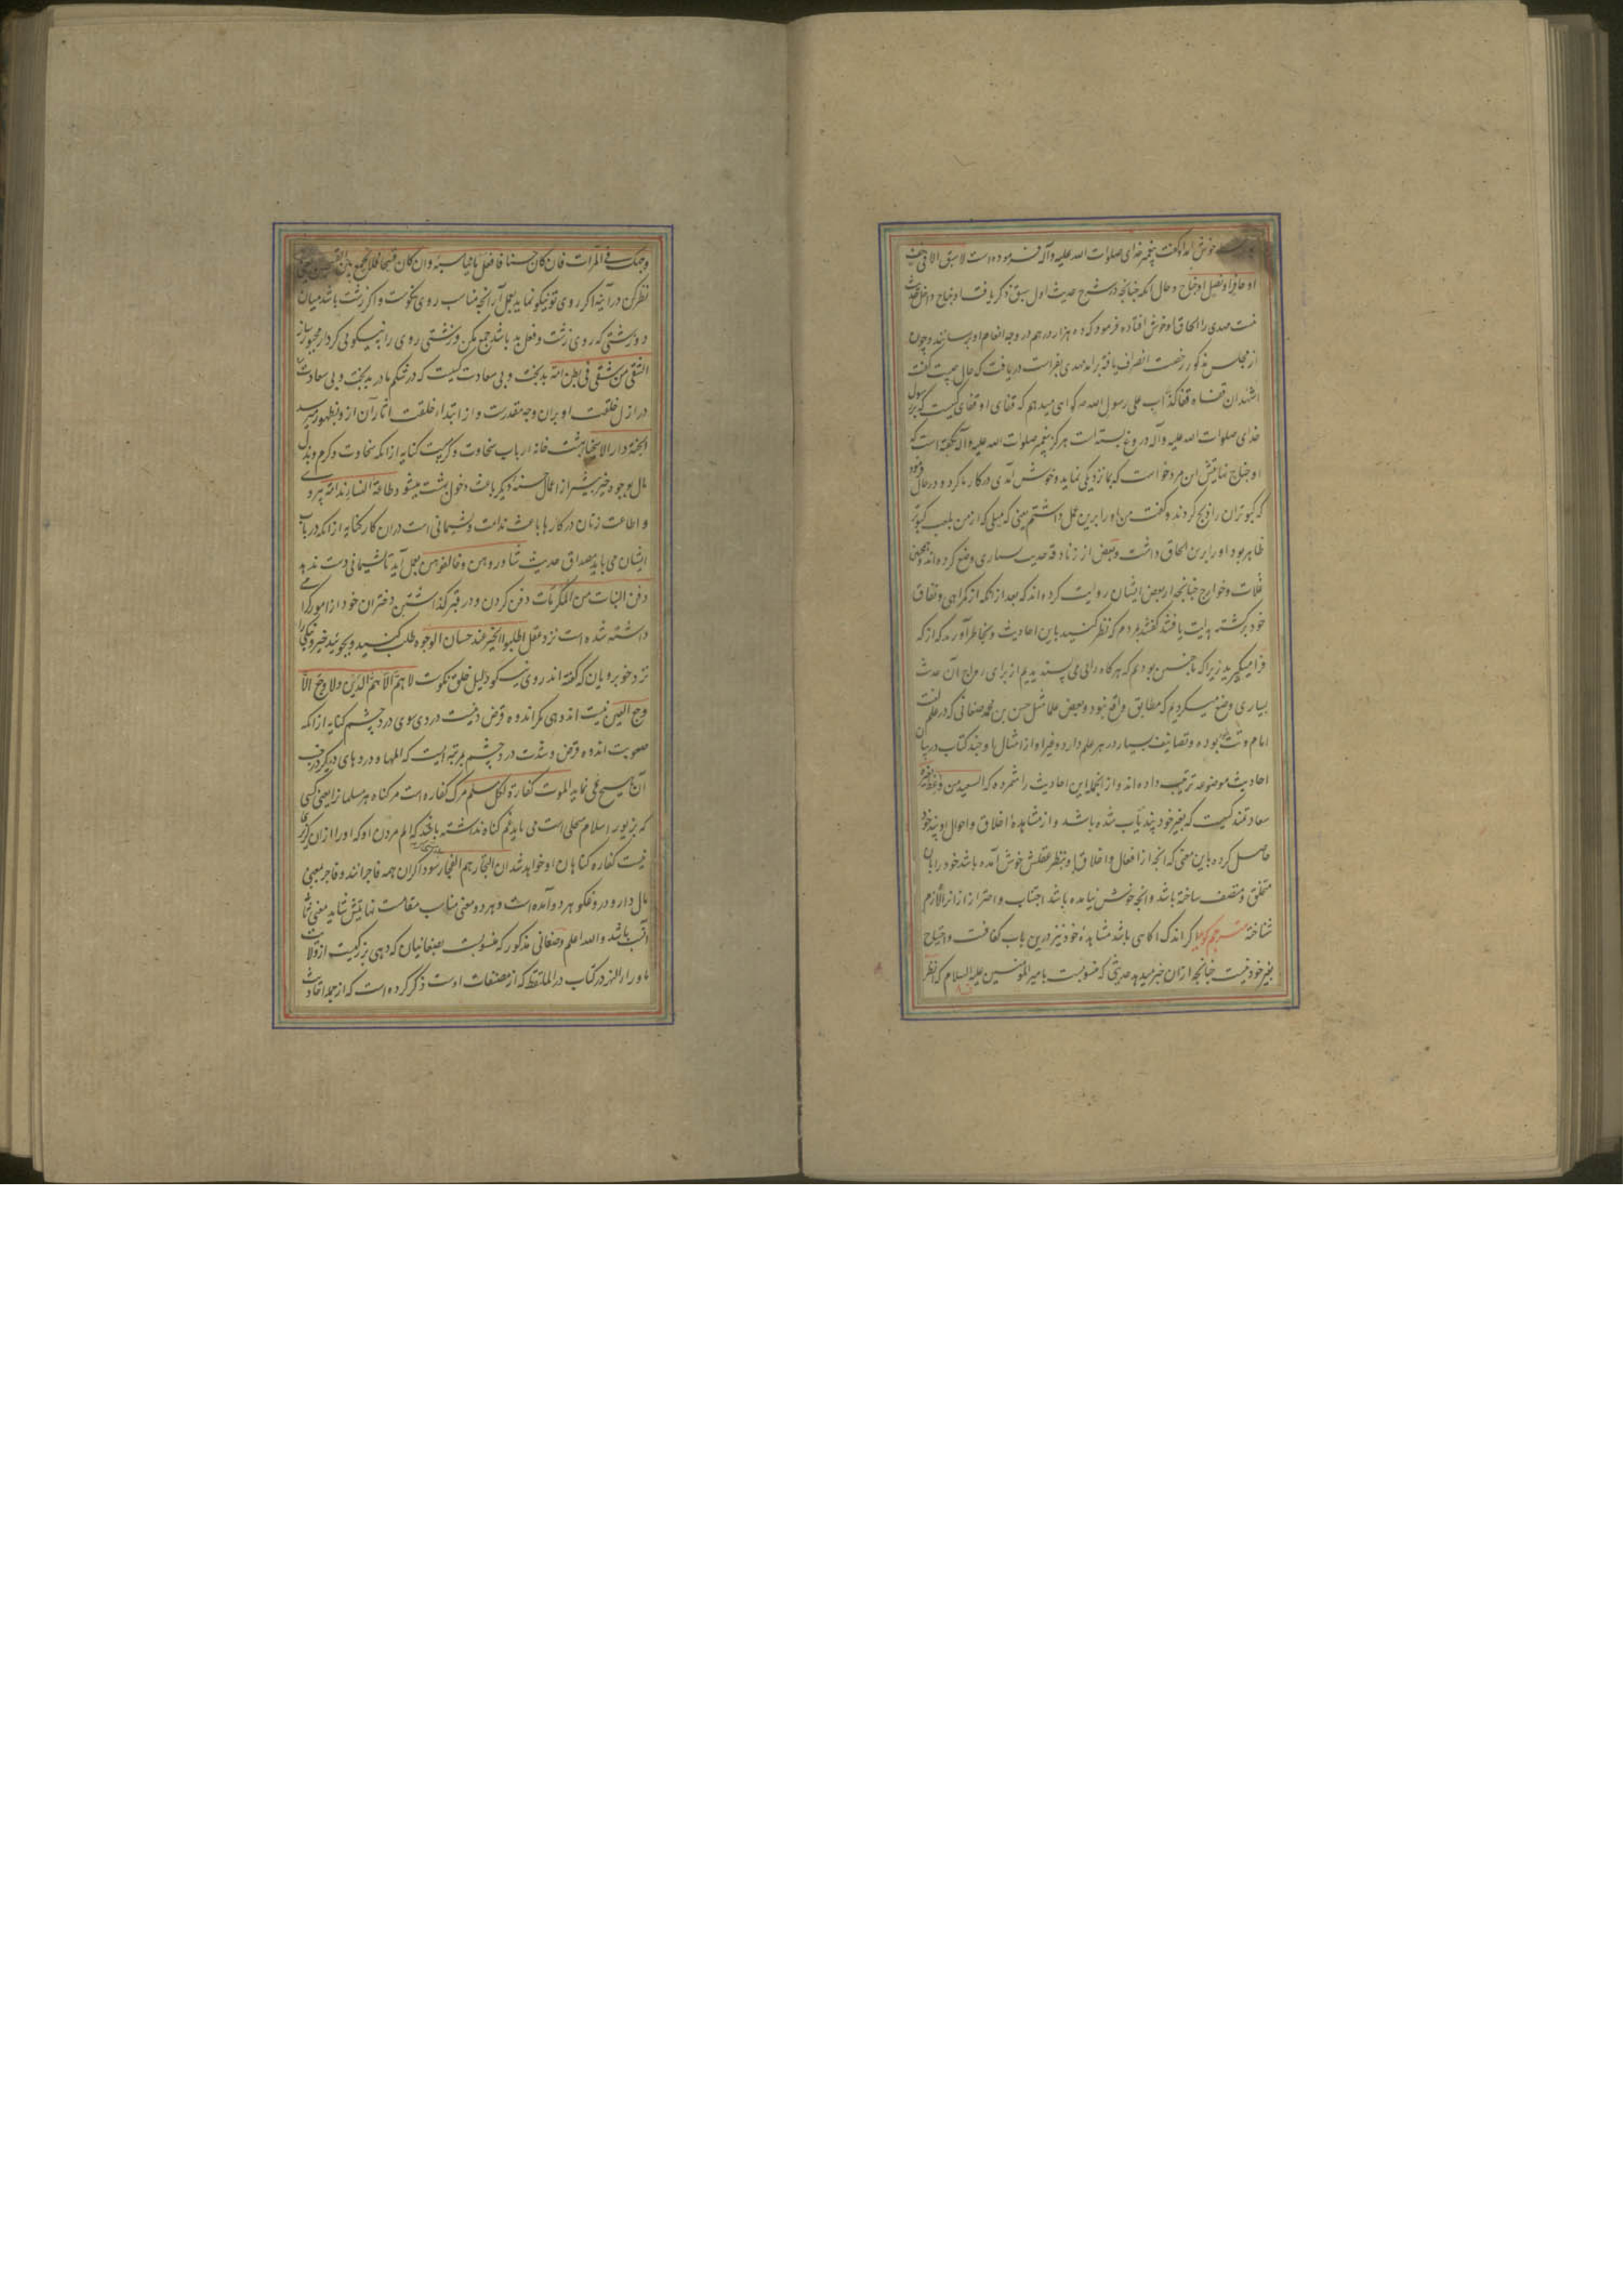 خوش آمد او گفت پیغمبر خدای صلوات الله علیه وآله فرموده است لا سبق الا فی خف
او حافر او نصل او جناح و حال آنکه چنانچه در شرح حدیث اول سبق ذکر یافت او جناح داخل حدیث
نیست مهدی را الحاق او خوش افتاده فرمود که ده هزار درهم در وجه انعام او برسانند و چون
از مجلس مذکور رخصت انصراف یافته برآمد مهدی بفراست دریافت که حال چیست گفت
اشهد ان قفاه قفا کذّاب علی رسول الله ص گواهی میدهم که قفای او قفای کسیست که بر رسول
خدای صلوات الله علیه وآله دروغ بسته است هرگز پیغمبر صلوات الله علیه وآله نگفته است که
او جناح نهایتش این مرد خواست که بما نزدیکی نماید و خوش آمدی در کار ما کرد و در حال فرمود
که کبوتران را ذبح کردند و گفت من او را برین عمل داشتم یعنی که میلی که از من بلعب کبوتر
ظاهر بود او را برین الحاق داشت و بعض از زنادقه حدیث بسیاری وضع کرده‌اند و همچنین
غلات و خوارج چنانچه از بعض ایشان روایت کرده‌اند که بعد از آنکه از گمراهی و نفاق
خود برگشته هدایت یافتند گفتند بمردم که نظر کنید باین احادیث و بخاطر آورید که از که
فرا میگیرید زیرا که ما چنین بودیم که هرگاه رایی می پسندیدیم از برای رواج آن حدیث
بسیاری وضع میکردیم که مطابق واقع نبود و بعض علما مثل حسن بن محمد صغانی که در علم لغت
امام وقت بوده و تصانیف بسیار در هر علم دارد و غیر او از امثال او چند کتاب در بیان
احادیث موضوعه ترتیب داده‌اند و از آنجمله این احادیث را شمرده که السعید من وعظ بغیره
سعادتمند کسیست که بغیر خود پند یاب شده باشد و از مشاهده اخلاق و احوال او پند خود
حاصل کرده باین معنی که آنچه از افعال و اخلاق او بنظر عقلش خوش آمده باشد خود را بآن
متخلق و متصف ساخته باشد و آنچه خوش نیامده باشد اجتناب و احتراز از آنرا لازم
شناخته مترجم گوید اگر اندک آگاهی باشد مشاهده خود نیز درین باب کفافست و احتیاج
بغیر خود نیست چنانچه از آن خبر میدهد حدیثی که منسوبست بامیر المؤمنین علیه السلام که انظر
وجهک فی المرات فان کان حسنا فافعل ما یناسبه و ان کان قبیحا فلا تجمع بین القبیحین یعنی
نظر کن در آینه اگر روی تو نیکو نماید بعمل آر آنچه مناسب روی نکوست و اگر زشت باشد میان
دو زشتی که روی زشت و فعل بد باشد جمع مکن و زشتی روی را به نیکویی کردار مجبور ساز
الشقی من شقی فی بطن امه بدبخت و بی سعادت کسیست که در شکم مادر بدبخت و بی سعادتست
در ازل خلقت او بران وجه مقدرست و از ابتداء خلقت آثار آن ازو بظهور میرسد
الجنة دار الاسخیا بهشت خانه ارباب سخاوت و کرمست کنایه از آنکه سخاوت و کرم و بذل
مال بوجوه خیر بیشتر از اعمال حسنه دیگر باعث دخول بهشت میشود طاعة النساء ندامة پیروی
و اطاعت زنان در کارها باعث ندامت و پشیمانی است در آن کار کنایه از آنکه در باب
ایشان می باید بمصداق حدیث شاوروهن و خالفوهن بعمل آید تا پشیمانی دست ندهد
دفن البنات من المکرمات دفن کردن و در قبر گذاشتن دختران خود از امور گرامی
داشته شده است نزد عقل اطلبوا الخیر عند حسان الوجوه طلب کنید و بجوئید خیر و نیکی را
نزد خوبرویان که گفته اند روی نیکو دلیل خلق نکوست لا هم الا هم الدین ولا وجع الا
وجع العین نیست اندوهی مگر اندوه قرض و نیست دردی سوی درد چشم کنایه از آنکه
صعوبت اندوه قرض و شدت درد چشم بمرتبه ایست که المها و دردهای دیگر در جنب
آن هیچ می نماید الموت کفارة لکل مسلم مرگ کفاره است مر گناه هر مسلمانرا یعنی کسی
که بزیور اسلام محلی است می باید غم گناه نداشته باشد که الم مردن او که او را ازان گزیری
نیست کفاره گناهان او خواهد شد ان التجار هم الفجار سوداگران همه فاجرانند و فاجر بمعنی
مال دار و دروغگو هر دو آمده است و هر دو معنی مناسب مقامست نهایتش شاید معنی ثانی
انسب باشد والله اعلم و صغانی مذکور که منسوبست بصغانیان که دهی بزرگیست از ولایت
ماوراء النهر در کتاب در الملتقط که از مصنفات اوست ذکر کرده است که از جمله احادیث